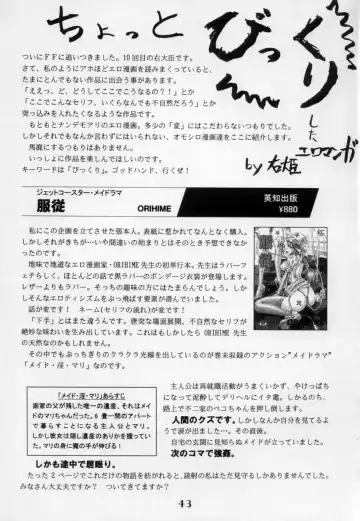 ちょっと
びっくり
した
エロマンガ
by 右姫
ついにFFに追いつきました。10回目の右大臣です。
さて、私のようにアホほどエロ漫画を読みまくっていると、
たまにとんでもない作品に出会う事があります。
「ええっ、ど、どうしてここでこうなるの?!」とか
「ここでこんなセリフ、いくらなんでも不自然だろう」とか
突っ込みを入れたくなるような作品です。
もともとナンデモアリのエロ漫画。多少の「変」にはこだわらないつもりでした。
しかしそれでもなんか言わずにはいられない、オモシロ漫画達をここに紹介します。
馬鹿にするつもりはありません。
いっしょに作品を楽しんでほしいのです。
キーワードは「びっくり」。ゴッドハンド、行くぜ!
ジェットコースター・メイドラマ
服従 ORIHIME
英知出版
¥880
私にこの企画を立てさせた張本人。表紙に惹かれてなんとなく購入。
しかしそれがきちが…いや間違いの始まりとはそのとき予想できなかっ
たのです。
地味で地道なエロ漫画家・ORIHIME先生の初単行本。先生はラバーフ
ェチらしく、ほとんどの話で黒ラバーのボンデージ衣装が登場します。
レザーよりもラバー。そっちの趣味の方にはたまらんでしょう。しかし
そんなエロティシズムをぶっ飛ばす要素が潜んでいました。
話が変です! ネーム(セリフの流れ)が変です!
「下手」とはまた違うんです。唐突な場面展開、不自然なセリフが
絶妙な味わいを生み出しています。これはもしかしたらORIHIME先生
の天然なのかもしれません。
その中でもぶっちぎりのクラクラ光線を出しているのが巻末収録のアクション"メイドラマ"
「メイド・淫・マリ」なのです。
「メイド・淫・マリ」あらすじ
画家の父が残した唯一の遺産、それはメイ
ドのマリちゃんだった。6畳一間のアパート
で暮らすことになる主人公とマリ。
しかし彼女は隠し遺産のありかを握ってい
た。マリの身に魔の手が伸びる!
主人公は再就職活動がうまくいかず、やけっぱち
になって泥酔してデリヘルにイタ電。かえるのち、
路上で不二家のペコちゃんを押し倒します。
人間のクズです。しかしなんか自分を見てるよ
うで涙が出ました…。その直後。
自宅の玄関に見知らぬメイドが立っていました。
次のコマで強姦。
しかも途中で居眠り。
たった2ページでこれだけの物語を紡がれると、読射の私はただ見守るしかありませんでした。
みなさん大丈夫ですか? ついてきてますか?
43